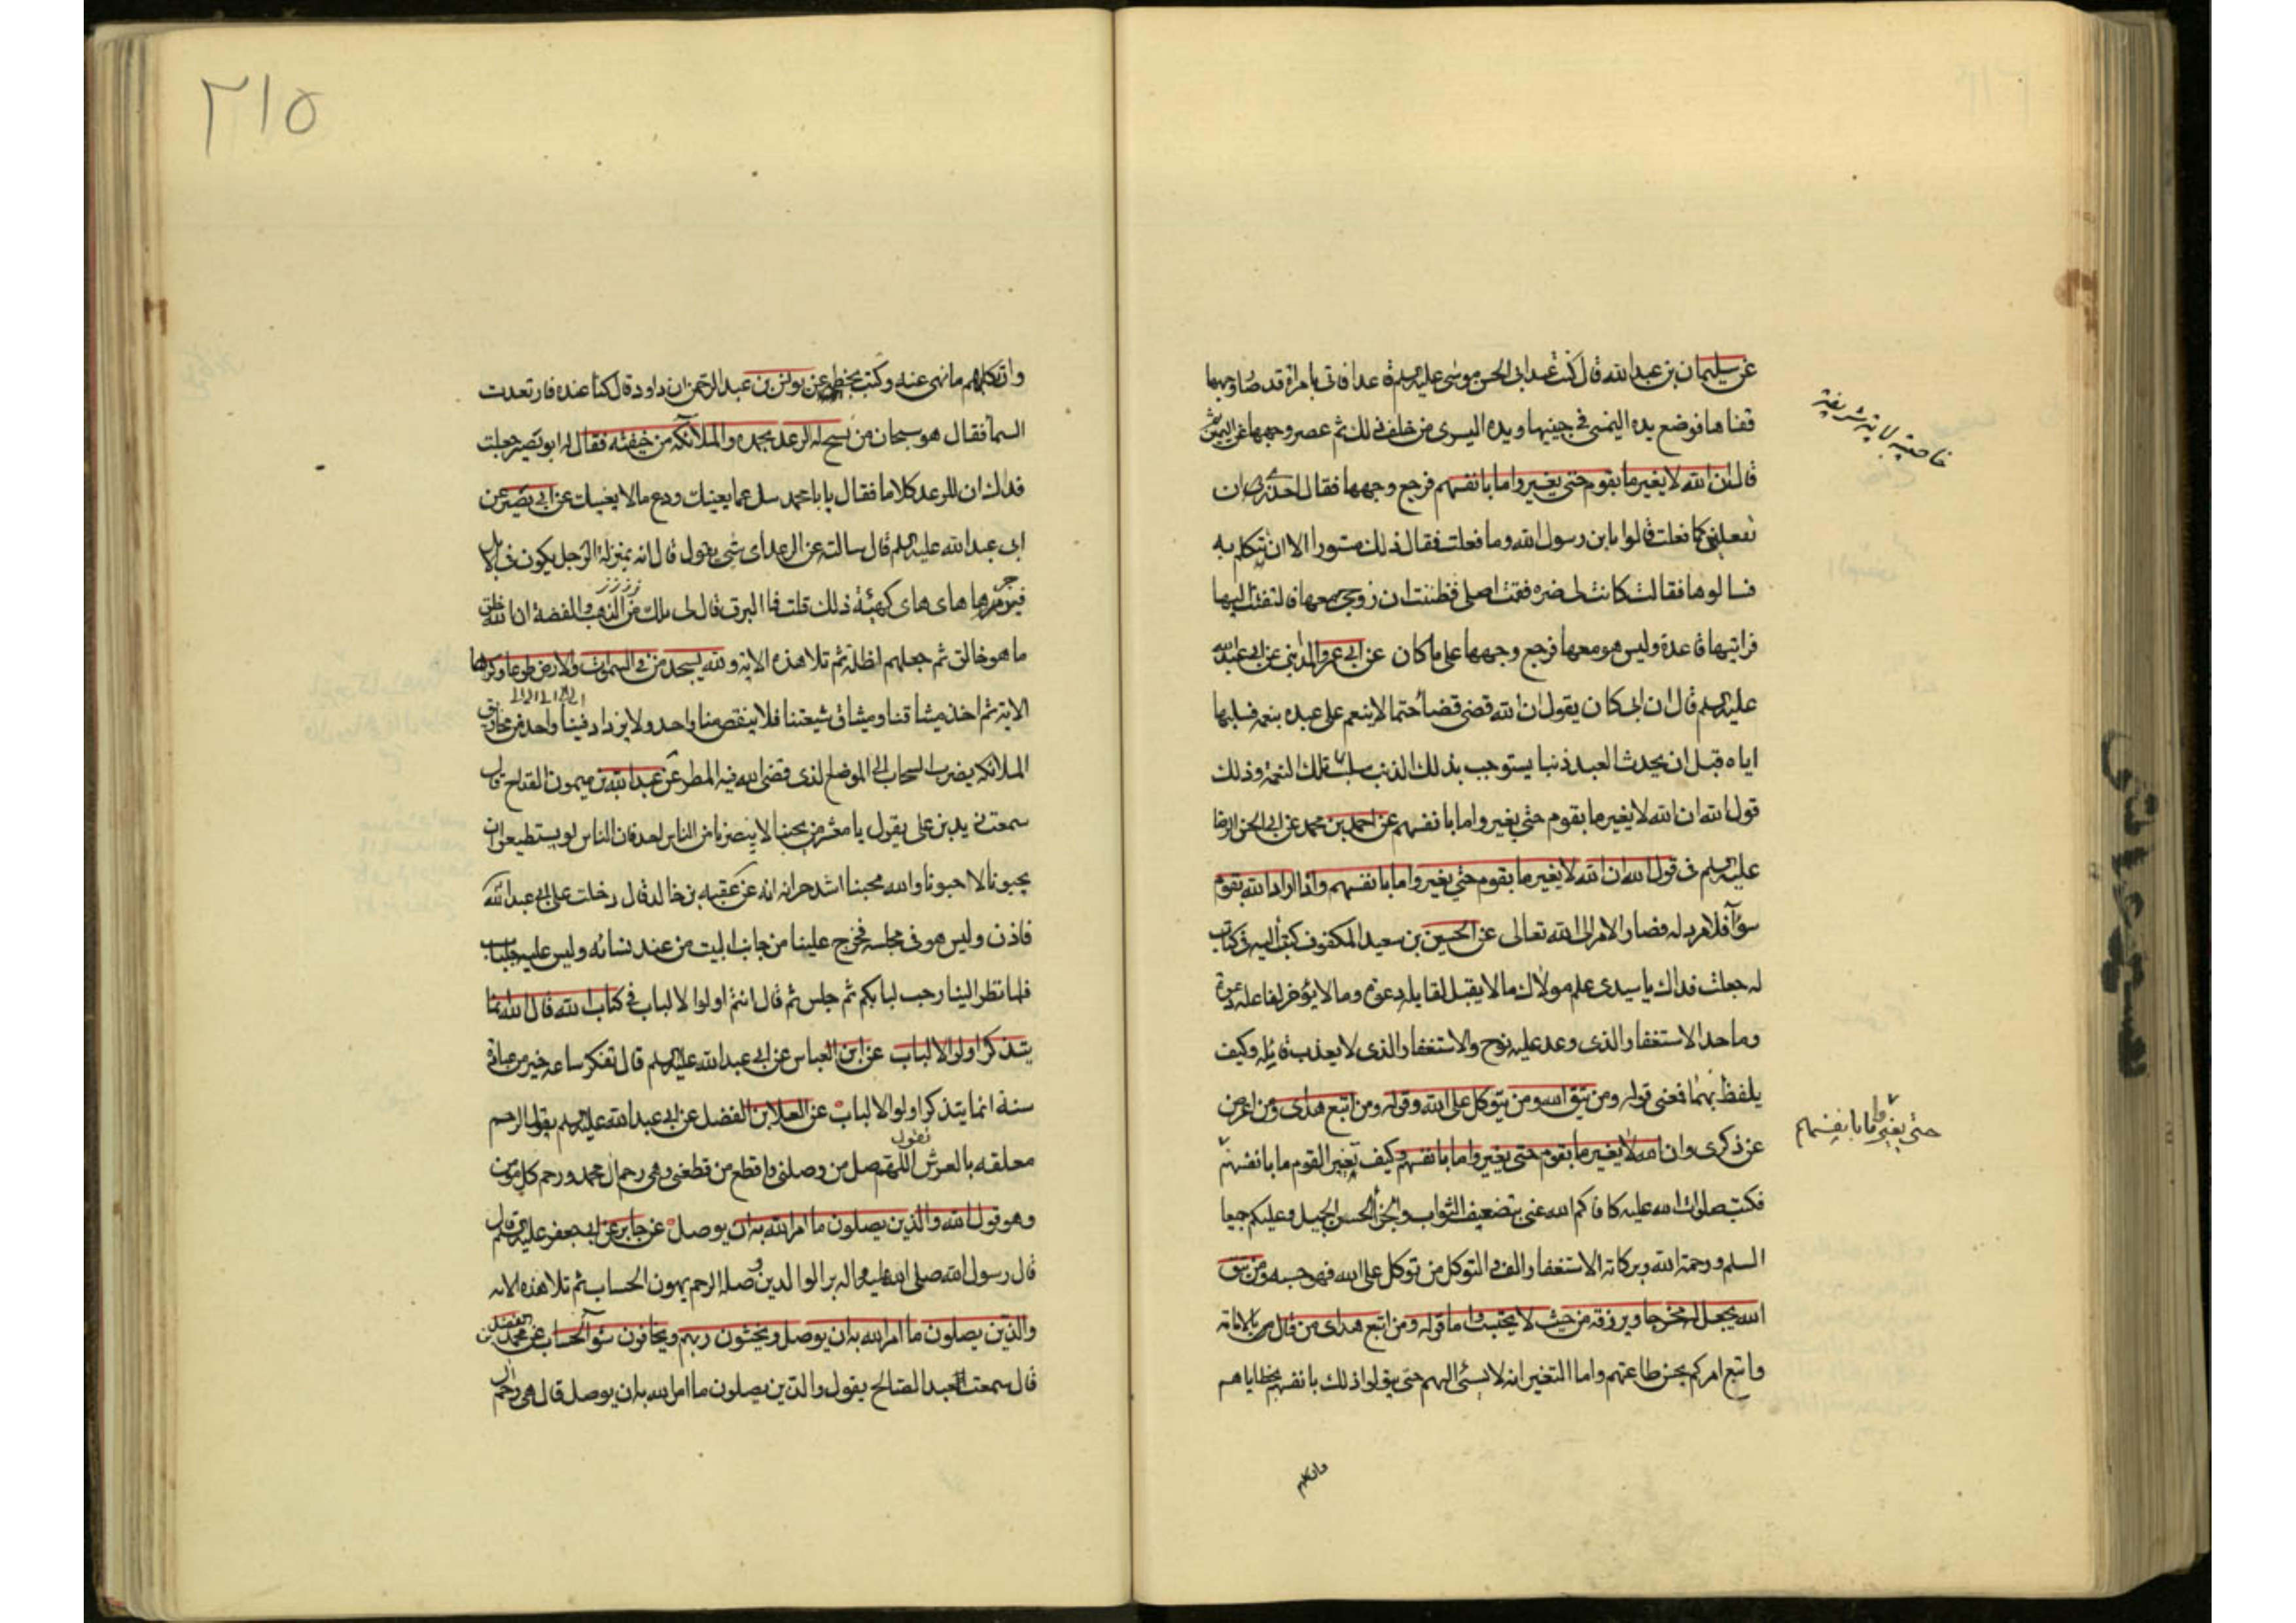 عن سليمان بن عبدالله قال كنت عند ابى الحسن موسى عليه السلم قاعدا فاتى بامراة قد صار وجهها
قفاها فوضع يده اليمنى فى جبينها ويده اليسرى من خلف ذلك ثم عصر وجهها عن اليمين ثم
قال ان الله لا يغير ما بقوم حتى يغيروا ما بانفسهم فرجع وجهها فقال احذرى ان
تفعلين كما فعلت قالوا يابن رسول الله وما فعلت فقال ذلك مستورا الا ان تتكلم به
فسالوها فقالت كانت لى ضره فقمت اصلى فظننت ان زوجى معها فالتفت اليها
فرايتها قاعدة وليس هو معها فرجع وجهها على ما كان عن ابى عمرو المدينى عن ابى عبدالله
عليه السلم قال ان ابى كان يقول ان الله قضى قضاء حتما لا ينعم على عبده بنعمه فسلبها
اياه قبل ان يحدث العبد ذنبا يستوجب بذلك الذنب سلب تلك النعمة وذلك
قول الله ان الله لا يغير ما بقوم حتى يغيروا ما بانفسهم عن احمد بن محمد عن ابى الحسن الرضا
عليه السلم فى قول الله ان الله لا يغير ما بقوم حتى يغيروا ما بانفسهم واذا اراد الله بقوم
سوأ فلا مرد له فصار الامر الى الله تعالى عن الحسين بن سعيد المكفوف كتب اليه فى كتاب
له جعلت فداك ياسيدى علم مولاك ما لا يقبل لقايله دعوة وما لا يؤخر لفاعله دعوة
وما حد الاستغفار الذى وعد عليه نوح والاستغفار الذى لا يعذب قايله وكيف
يلفظ بهما فعنى قوله ومن يتق الله ومن يتوكل على الله وقوله ومن اتبع هداى ومن اعرض
عن ذكرى وان الله لا يغير ما بقوم حتى يغيروا ما بانفسهم وكيف تغير القوم ما بانفسهم
فكتب صلوات الله عليه كافاكم الله عنى بتضعيف الثواب والجزا الحسن الجميل وعليكم جميعا
السلم ورحمة الله وبركاته الاستغفار الف والتوكل من توكل على الله فهو حسبه ومن يتق
الله يجعل له مخرجا ويرزقه من حيث لا يحتسب واما قوله ومن اتبع هداى من قال
واتبع امركم بحسن طاعتهم واما التغير انه لا يسئى اليهم حتى يتولوا ذلك بانفسهم بخطاياهم
خاصية لاية شريفة
حتى يغيروا ما بانفسهم
وارتكابهم
٢١٥
وارتكابهم ما نهى عنه وكتب بخطه عن يونس بن عبد الرحمن ان داود قال كنا عنده فارتعدت
السما فقال هو سبحان من يسبح له الرعد بحمده والملائكه من خيفته فقال له ابو بصير جعلت
فداك ان للرعد كلاما فقال يابا محمد سل عما يعنيك ودع ما لا يعنيك عن ابى بصير عن
ابى عبدالله عليه السلم قال سالته عن الرعد اى شى يقول قال انه بمنزلة الرجل يكون فى الابل
فيزجرها هاى هاى كهيئة ذلك قلت فما البرق قال لى
ما هو خالق ثم جعلهم اظلة ثم تلا هذه الاية ولله يسجد من فى السموات والارض طوعا وكرها
الاية ثم اخذ ميثاقنا وميثاق شيعتنا فلا ينقص منا واحد ولا يزداد فينا واحد من مخاريق
الملائكه يضرب السحاب الى الموضع الذى قضى الله فيه المطر عن عبدالله بن ميمون القداح قال
سمعت زيد بن على يقول يا معشر من يحبنا لا ينصرنا من الناس احد فان الناس لو يستطيعوا ان
يحبونا لاحبونا والله محبنا اشد عن عقبه بن خالد قال دخلت على ابى عبدالله
فاذن وليس هو فى مجلسه فخرج علينا من جانب البيت من عند نسائه وليس عليه جلباب
فلما نظر الينا رحب بكم ثم جلس ثم قال انتم اولوا الالباب فى كتاب الله قال الله انما
يتذكر اولوا الالباب عن ابن العباس عن ابى عبدالله عليه السلم قال تفكر ساعه خير من عبادة
سنة انما يتذكر اولوا الالباب عن العلا بن الفضل عن ابى عبدالله عليه السلم يقول الرحم
معلقه بالعرش تقول اللهم صل من وصلنى واقطع من قطعنى وهى رحم ال محمد ورحم كل مومن
وهو قول الله والذين يصلون ما امر الله به ان يوصل عن جابر عن ابى جعفر عليه السلم قال
قال رسول الله صلى الله عليه واله بر الوالدين وصلة الرحم يهون الحساب ثم تلا هذه الايه
والذين يصلون ما امر الله به ان يوصل ويخشون ربهم ويخافون سوء الحساب عن محمد بن الفضيل
قال سمعت العبد الصالح يقول والذين يصلون ما امر الله به ان يوصل قال هى رحم ال